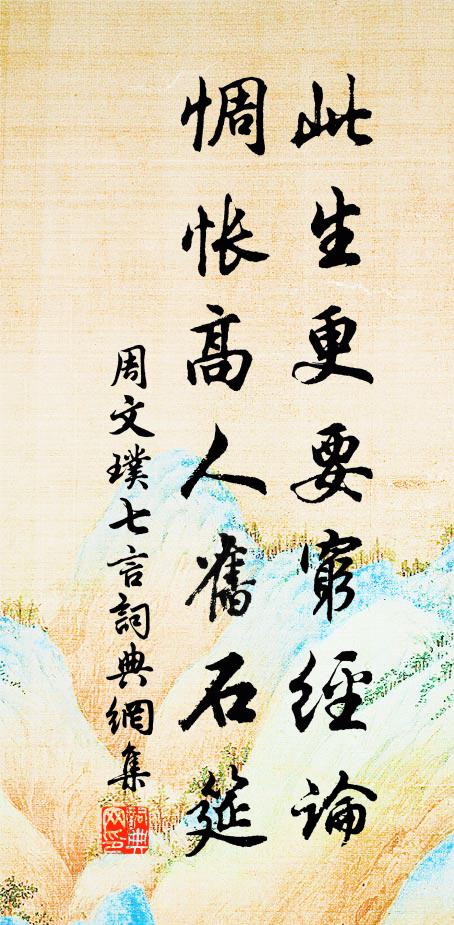 此生更要窮經論
惆怅高人舊石筵
周文璞七言詞典網集
詞典网印